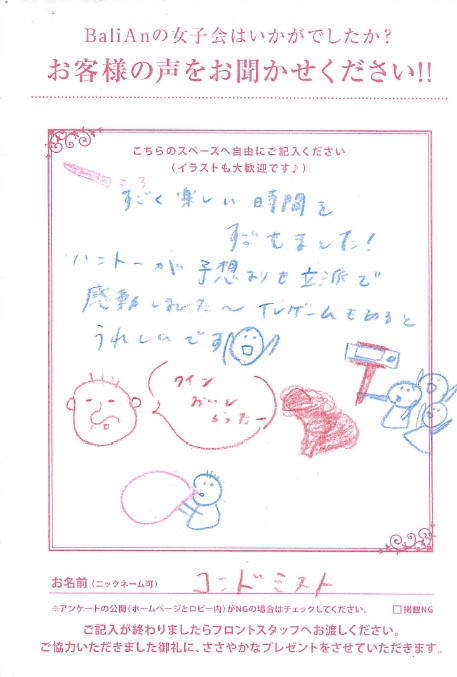 BaliAnの女子会はいかがでしたか?
お客様の声をお聞かせください!!
こちらのスペースへ自由にご記入ください
(イラストも大歓迎です♪)
すごく楽しい時間を
すごせました!
ハニトーが予想よりも立派で
感動しました〜
うれしいです
ワイン
おいし
かったー
お名前(ニックネーム可) コンドミスト
※アンケートの公開(ホームページとロビー内)がNGの場合はチェックしてください。 □掲載NG
ご記入が終わりましたらフロントスタッフへお渡しください。
ご協力いただきました御礼に、ささやかなプレゼントをさせていただきます。